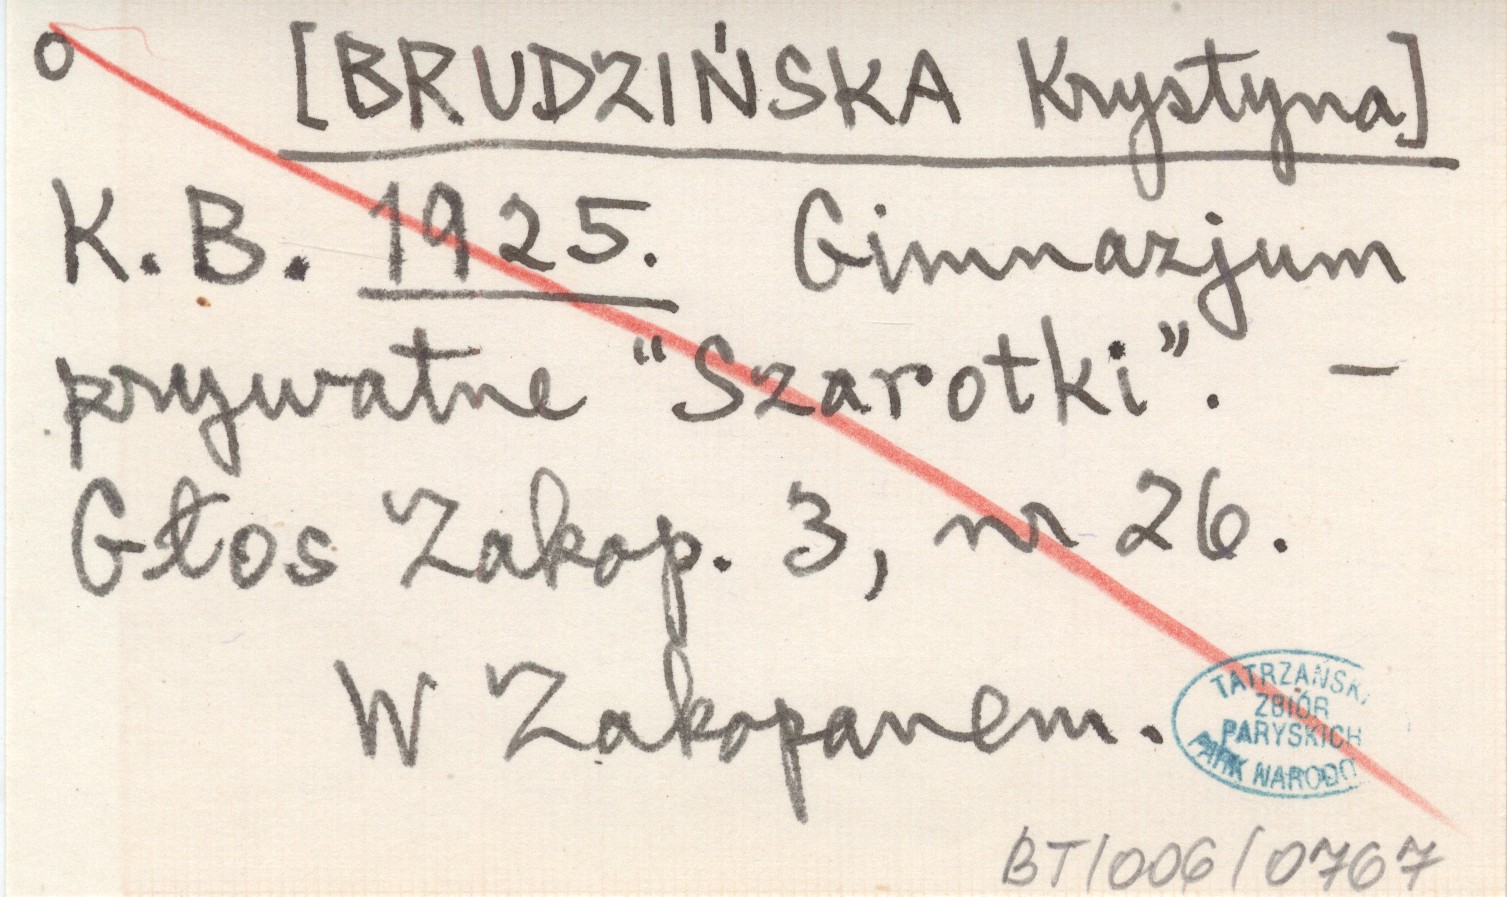 o [BRUDZIŃSKA Krystyna]
K. B. 1925. Gimnazjum
prywatne "Szarotki". –
Głos Zakop. 3, nr 26.
W Zakopanem.
TATRZAŃSKI
ZBIÓR
PARYSKICH
PARK NARODO
BT/006/0767